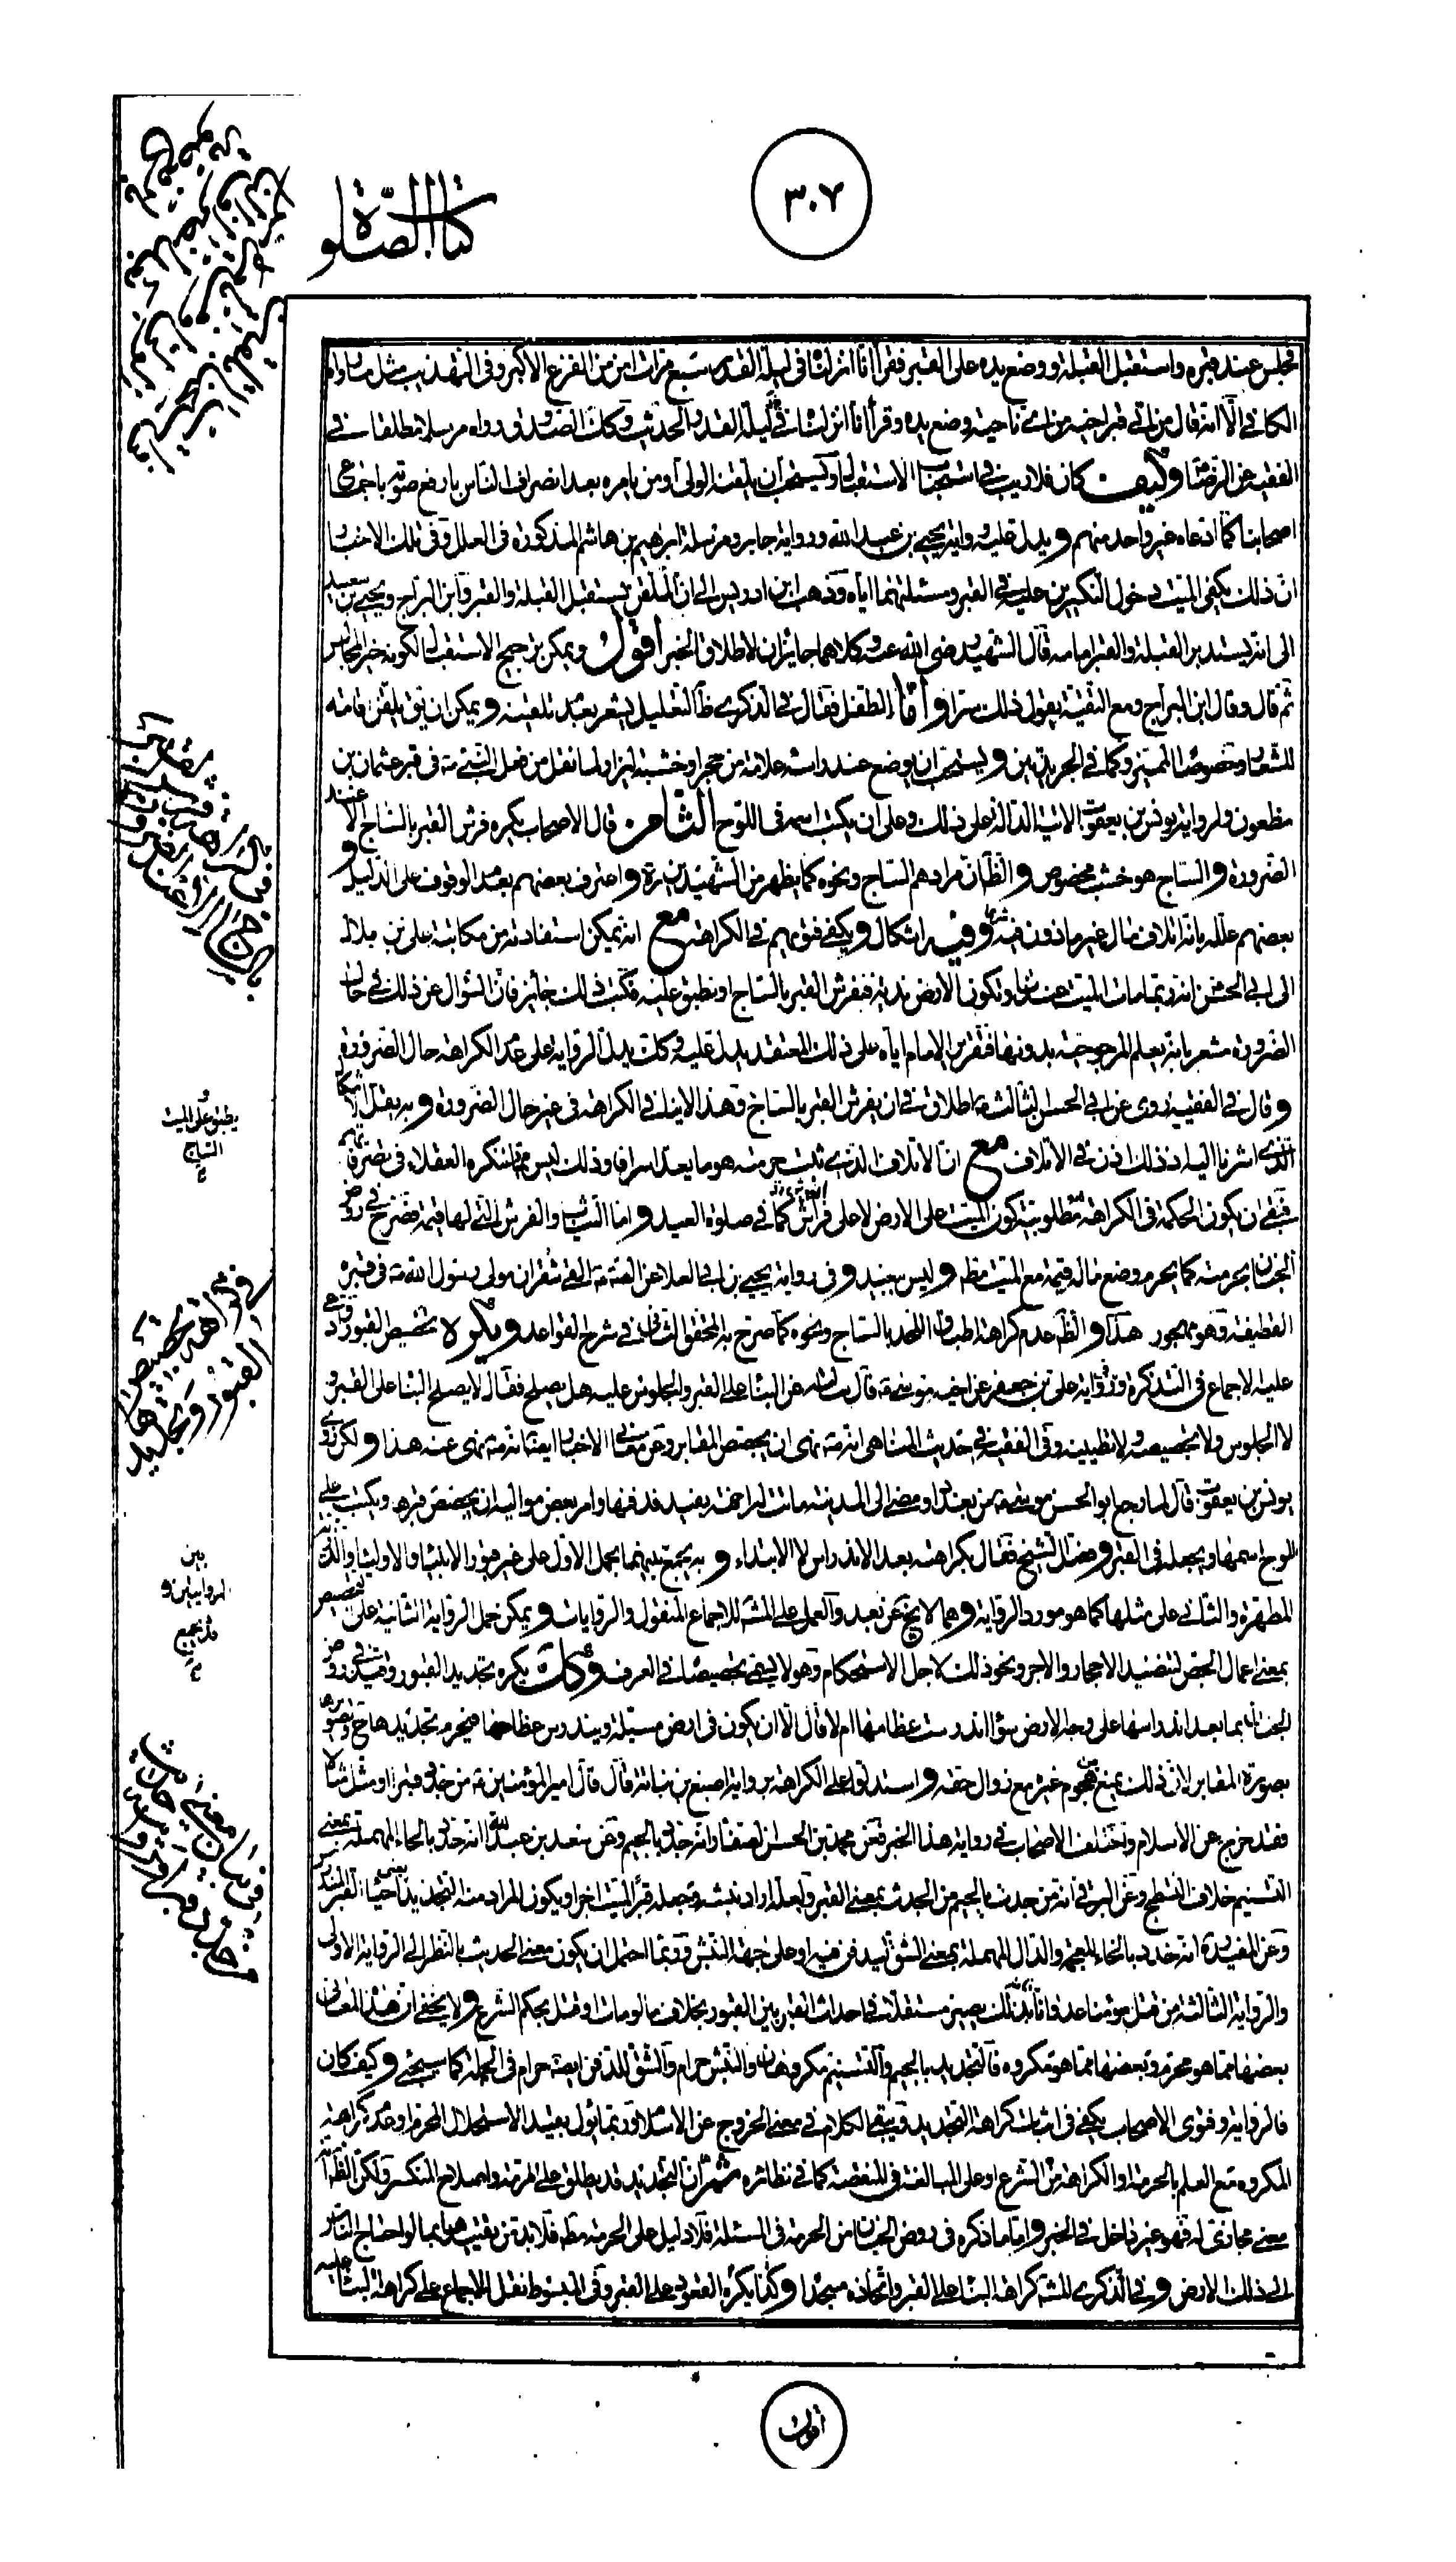 ٣٠٧
كتاب الصلوة
فجلس عند قبره واستقبل القبلة ووضع يده على القبر فقرأ انا انزلناه في ليلة القدر سبع مرات امن من الفزع الاكبر وفي التهذيب مثل ما رواه
الكافي الا انه قال من اتى قبر اخيه من اي ناحية وضع يده وقرأ انا انزلناه في ليلة القدر الحديث وكك الصدوق ورواه مرسلا مطلقا في
الفقيه عن الرضا وكيف كان فلا ريب في استحباب الاستقبال ويستحب ان يلقنه الولي او من يامره بعد انصراف الناس بارفع صوته باجماع
اصحابنا كما ادعاه غير واحد منهم ويدل عليه رواية يحيى بن عبد الله ورواية جابر ومرسلة ابرهيم بن هاشم المذكورة في العلل وفي تلك الاخبار
ان ذلك يكفي الميت دخول النكيرين عليه في القبر ومسئلتهما اياه وذهب ابن ادريس الى ان الملقن يستقبل القبلة والقبر وابن البراج ويحيى بن سعيد
الى انه يستدبر القبلة والقبر امامه قال الشهيد رضي الله عنه وكلاهما جايزان لاطلاق الخبر اقول ويمكن ترجيح الاستقبال لكونه خير المجالس
ثم قال وقال ابن البراج ومع التقية يقول ذلك سرا واما الطفل فقال في الذكرى ظ التعليل يشعر بعدم تلقينه ويمكن ان يق يلقن اقامة
للشعار وخصوصا المميز وكما في الجريدتين ويستحب ان يوضع عند راسه علامة من حجر او خشبة ليزار لما نقل من فعل النبي ص في قبر عثمان بن
مظعون ولرواية يونس بن يعقوب الاتية الدالة على ذلك وعلى ان يكتب اسمه في اللوح الثامن قال الاصحاب يكره فرش القبر بالساج الا عند
الضرورة والساج هو خشب مخصوص والظ ان مرادهم الساج ونحوه كما يظهر من الشهيدين ره واعترف بعضهم بعدم الوقوف على الدليل و
بعضهم علله بانه اتلاف مال غير ماذون فيه شرعا وفيه اشكال ويكفي فتويهم في الكراهة مع انه يمكن استفادته من مكاتبة علي بن بلال
الى ابي الحسن انه ربما مات الميت عندنا وتكون الارض ندية فيفرش القبر بالساج او نطبق عليه فكتب ذلك جايز فان السؤال عن ذلك في حال
الضرورة مشعر بانه يعلم المرجوحية بدونها فتقرير الامام اياه على ذلك المعتقد يدل عليه وكك يدل الرواية على عدم الكراهة حال الضرورة
وقال في الفقيه روى عن ابي الحسن الثالث ع اطلاق في ان يفرش القبر بالساج وهذا لا ينافي الكراهة في غير حال الضرورة وبه يقل الاشكال
الذي اشرنا اليه اذ ذلك اذن في الاتلاف مع ان الاتلاف الذي ثبت حرمته هو ما يعد اسرافا وذلك ليس مما يستنكره العقلاء في تصرفاتهم
فينبغي ان يكون الحكمة في الكراهة مطلوبية كون الميت على الارض لا على فراش كما في صلوة العيد واما الثياب والفرش التي لها قيمة فصرح في روض
الجنان بحرمته كما يحرم وضع ماله قيمة مع الميت مط وليس ببعيد وفي رواية يحيى بن ابي العلا عن الصادق ع القى شقران مولى رسول الله ص في قبره
القطيفة وهو مهجور هذا والظ عدم كراهة اطباق اللحد بالساج ونحوه كما صرح به المحقق الثاني في شرح القواعد ويكره تجصيص القبور وادعي
عليه الاجماع في التذكرة وفي رواية علي بن جعفر عن اخيه موسى ع قال سالته عن البناء على القبر والجلوس عليه هل يصلح فقال لا يصلح البناء على القبر و
لا الجلوس ولا تجصيصه ولا تطيينه وفي الفقيه في حديث المناهي انه ص نهى ان يجصص المقابر وعن معاني الاخبار ايضا انه ص نهى عنه هذا ولكن روى
يونس بن يعقوب قال لما رجع ابو الحسن موسى ع من بغداد ومضى الى المدينة ماتت ابنة له بفيد فدفنها وامر بعض مواليه ان يجصص قبرها ويكتب على
لوح اسمها ويجعله في القبر وفصل الشيخ فقال بكراهته بعد الاندراس لا الابتداء وبه يجمع بينهما بحمل الاول على غير قبور الانبياء والاولياء والذرية
المطهرة والثاني على مثلها كما هو مورد الرواية وهما لا يخ عن بعد والعمل على المش للاجماع المنقول والروايات ويمكن حمل الرواية الثانية على التجصيص
بمعنى اعمال الجص لتنضيد الاحجار والاجر ونحو ذلك لاجل الاستحكام وهو لا يسمى تجصيصا في العرف وكك يكره تجديد القبور وقيده في روض
الجنان بما بعد اندراسها على وجه الارض سواء اندرست عظامها ام لا قال الا ان يكون في ارض مسبلة ويندرس عظامها فيحرم تجديدها ح وتصويرها
بصورة المقابر لان ذلك يمنع هجوم غيره مع زوال حقه واستدلوا على الكراهة برواية اصبغ بن نباتة قال قال امير المؤمنين ع من جدد قبرا او مثل مثالا
فقد خرج عن الاسلام واختلف الاصحاب في رواية هذا الخبر فعن محمد بن الحسن الصفار انه جدد بالجيم وعن سعد بن عبد الله انه حدد بالحاء المهملة بمعنى
التسنيم خلاف التسطيح وعن البرقي انه من جدث بالجيم من الجدث بمعنى القبر ولعله اراد نبشه وجعله قبرا لميت اخر او يكون المراد منه التجديد
وعن المفيد ره انه خدد بالخاء المعجمة والدال المهملة بمعنى الشق ليدفن فيه او على جهة النبش وربما احتمل ان يكون معنى الحديث بالنظر الى الرواية الاولى
والرواية الثالثة من قتل مؤمنا عدوانا لان بذلك يصير مستقلا في احداث القبر بين القبور بخلاف ما لو مات او قتل بحكم الشرع ولا يخفى ان هذه المعاني
بعضها مما هو محرم وبعضها مما هو مكروه فالتجديد بالجيم والتسنيم مكروهان والنبش حرام والشق للدفن ايضا حرام في الجملة كما سيجئ وكيف كان
فالرواية وفتوى الاصحاب يكفي في اثبات كراهة التجديد ويبقى الكلام في معنى الخروج عن الاسلام وربما يؤل بقيد الاستحلال المحرم او عدم كراهة
المكروه مع العلم بالحرمة والكراهة من الشرع او على المبالغة في المنقصة كما في نظائره ثم ان التجديد قد يطلق على المرمة واصلاح المنكسر ولكن الظ انه
معنى مجازى له فهو غير داخل في الخبر واما ما ذكره في روض الجنان من الحرمة في المسئلة فلا دليل على الحرمة مط فلا بد من تقييدها بما لو احتاج الناس
الى ذلك الارض وفي الذكرى المش كراهة البناء على القبر واتخاذه مسجدا وكذا يكره القعود على القبر وفي المبسوط نقل الاجماع على كراهة البناء عليه
يطبق على الميت
الساج
في كراهة تجصيص
القبور وتجديدها
بين
الروايتين و
قد يجمع
في بيان معنى حديث
من جدد قبرا او مثل
اقول